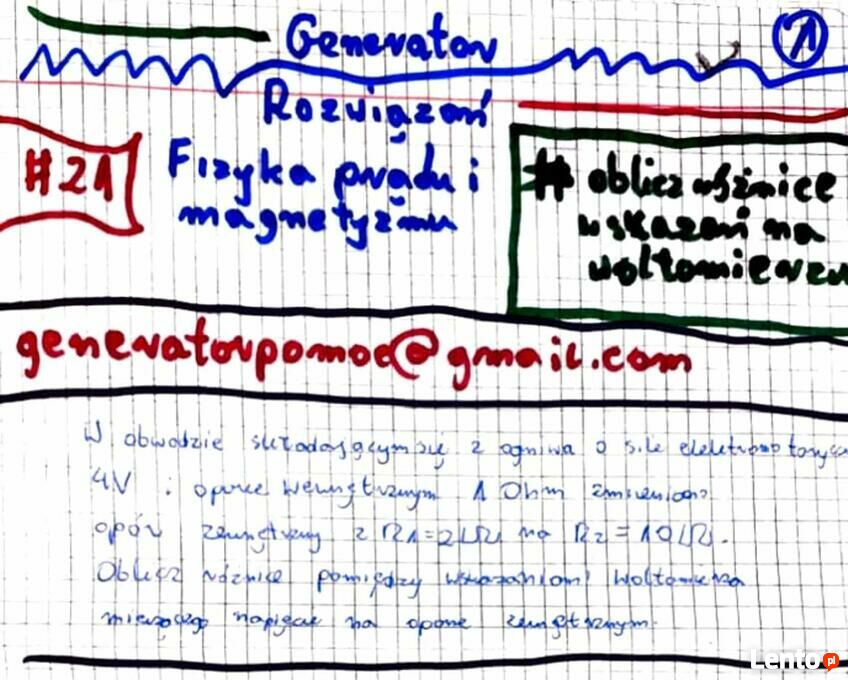 Generator
1
Rozwiązań
#21
Fizyka prądu i
magnetyzmu
# oblicz różnice
wskazań na
woltomierzu
generatorpomoc@gmail.com
W obwodzie składającym się z ogniwa o sile elektromotorycz
4V i oporze wewnętrznym 1 Ohm zmieniono
opór zewnętrzny z R1=2Ω na R2=10Ω.
Oblicz różnice pomiędzy wskazaniami woltomierza
mierzącego napięcie na oporze zewnętrznym.
Lento.pl